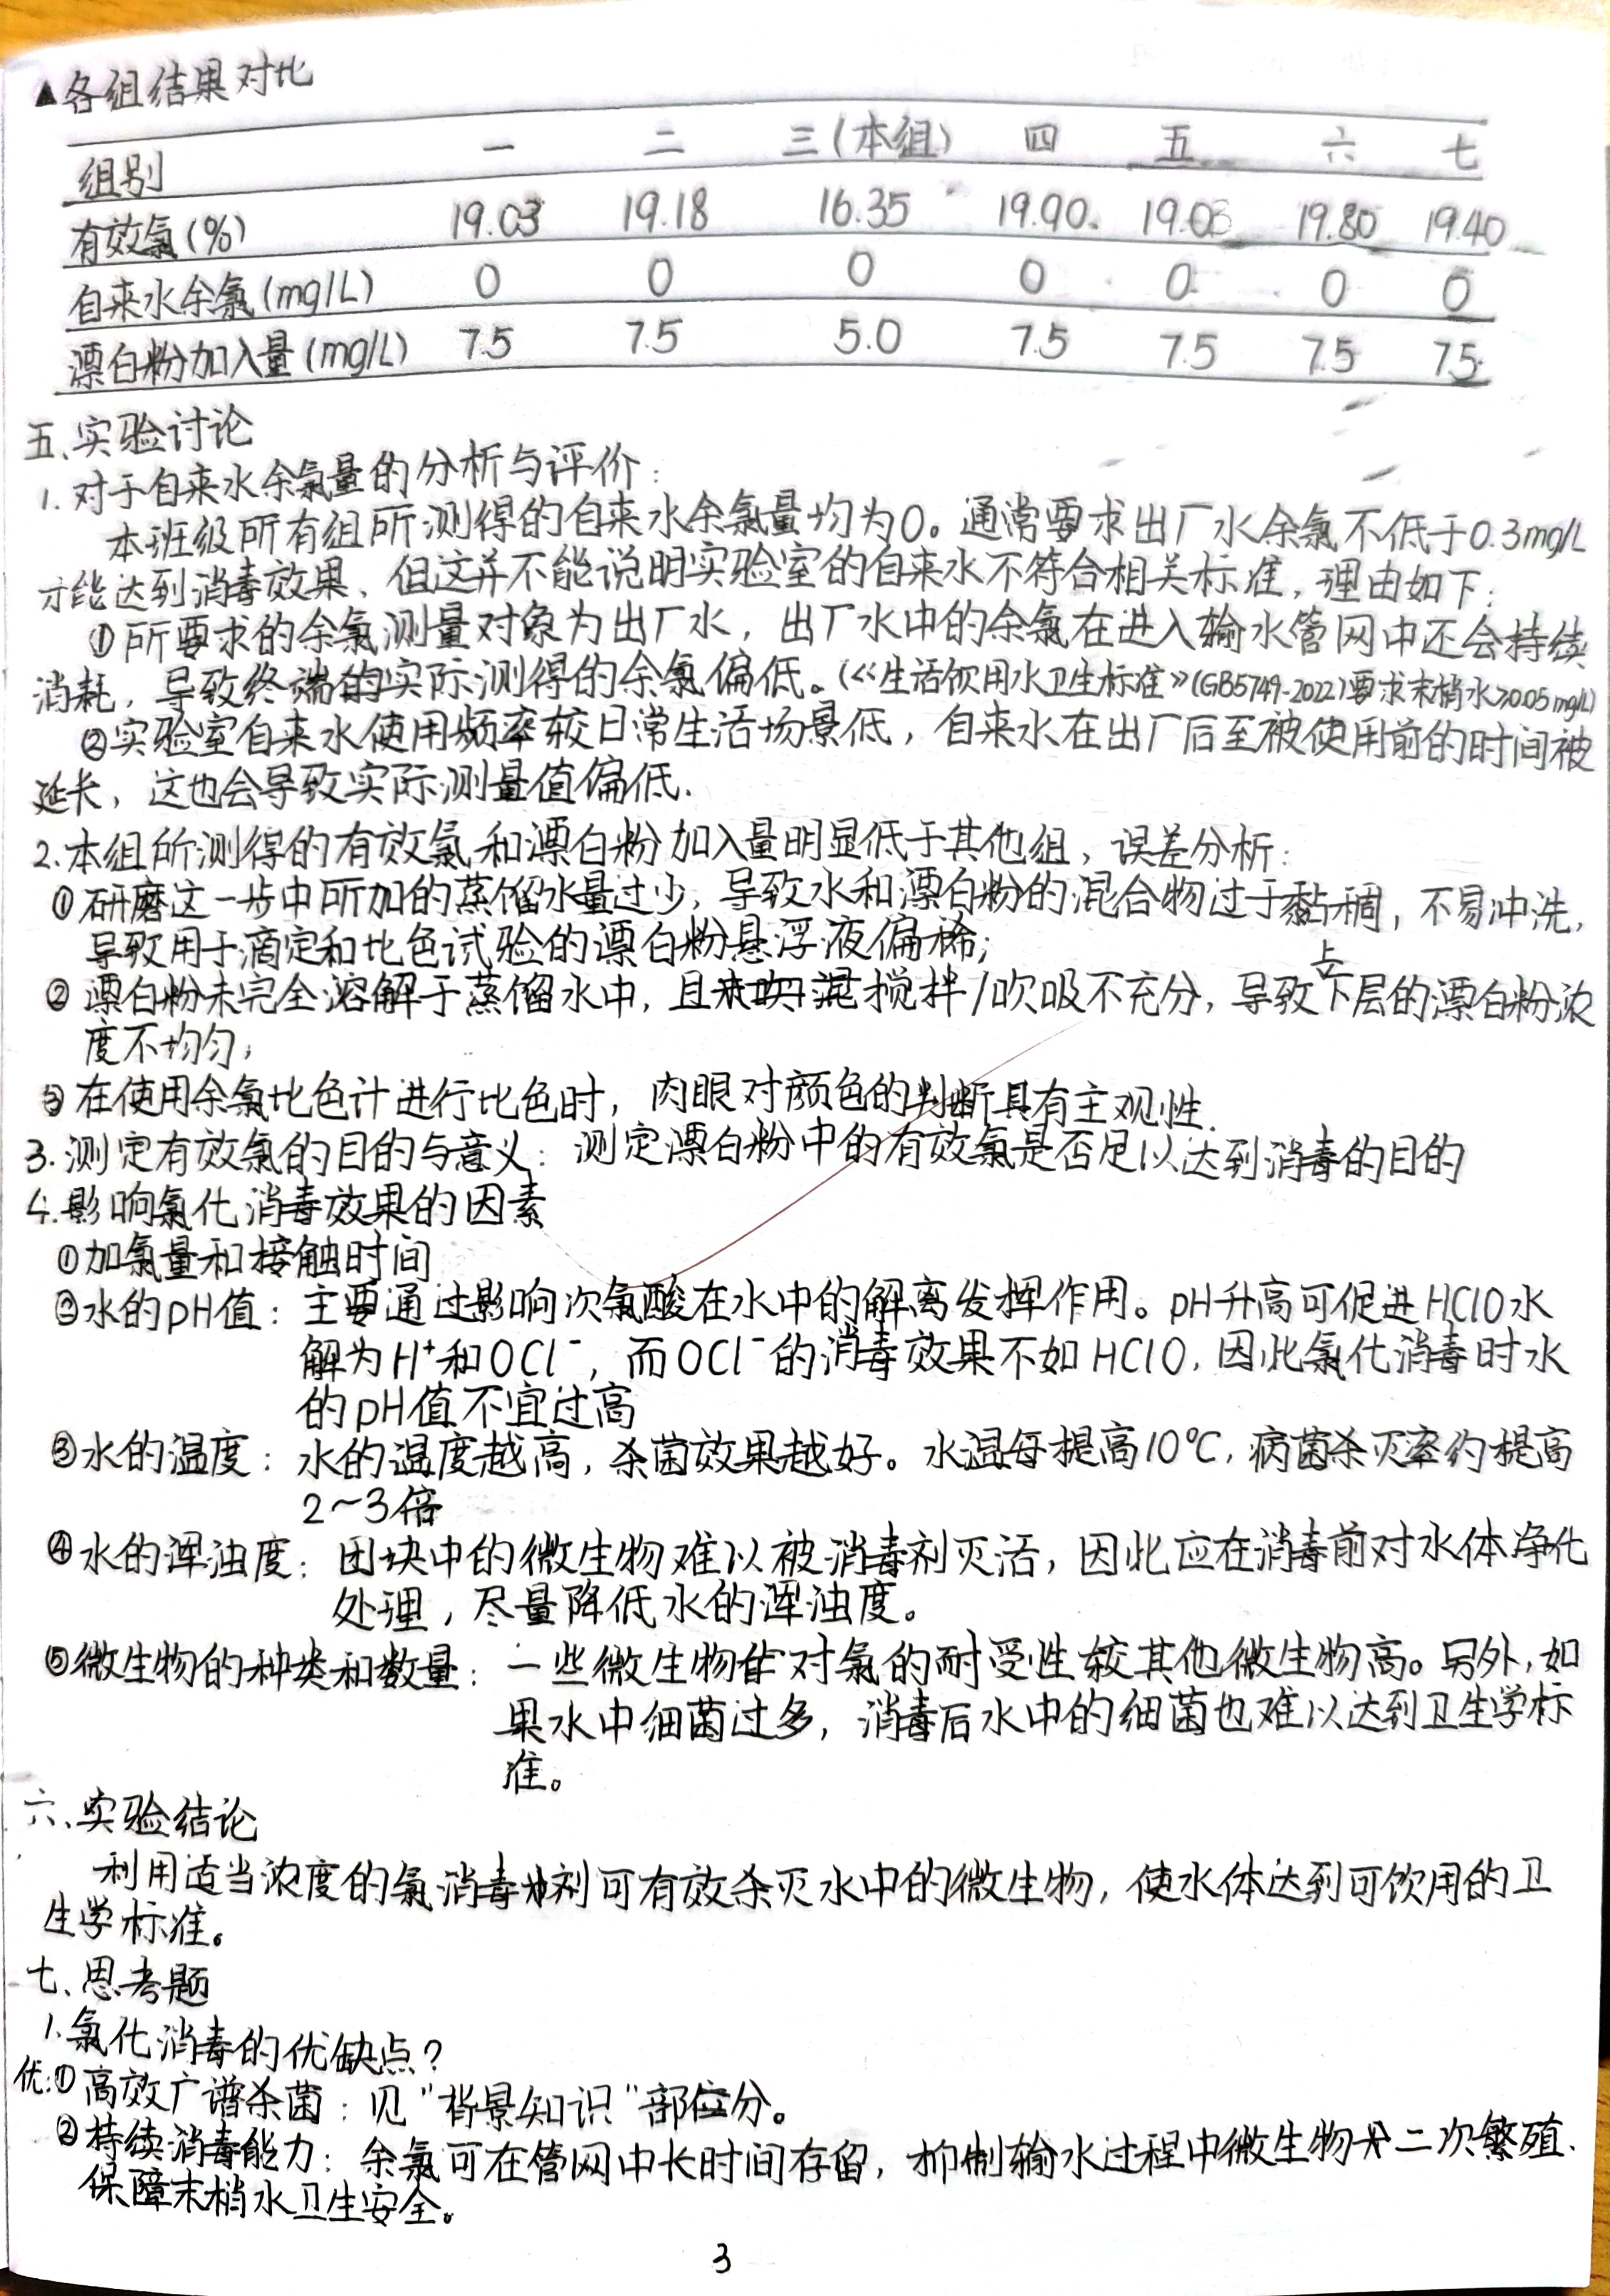 ▲各组结果对比
组别 一 二 三(本组) 四 五 六 七
有效氯(%) 19.03 19.18 16.35 19.90 19.08 19.80 19.40
自来水余氯(mg/L) 0 0 0 0 0 0 0
漂白粉加入量(mg/L) 7.5 7.5 5.0 7.5 7.5 7.5 7.5
五、实验讨论
1. 对于自来水余氯量的分析与评价:
本班级所有组所测得的自来水余氯量均为0。通常要求出厂水余氯不低于0.3mg/L
才能达到消毒效果、但这并不能说明实验室的自来水不符合相关标准,理由如下:
①所要求的余氯测量对象为出厂水,出厂水中的余氯在进入输水管网中还会持续
消耗,导致终端的实际测得的余氯偏低。(《生活饮用水卫生标准》(GB5749-2022)要求末梢水≥0.05mg/L)
②实验室自来水使用频率较日常生活场景低,自来水在出厂后至被使用前的时间被
延长,这也会导致实际测量值偏低.
2.本组所测得的有效氯和漂白粉加入量明显低于其他组,误差分析:
①研磨这一步中所加的蒸馏水量过少,导致水和漂白粉的混合物过于黏稠,不易冲洗,
导致用于滴定和比色试验的漂白粉悬浮液偏稀;
②漂白粉未完全溶解于蒸馏水中,且搅拌/吹吸不充分,导致上下层的漂白粉浓
度不均匀;
③在使用余氯比色计进行比色时,肉眼对颜色的判断具有主观性.
3.测定有效氯的目的与意义:测定漂白粉中的有效氯是否足以达到消毒的目的
4.影响氯化消毒效果的因素
①加氯量和接触时间
②水的pH值:主要通过影响次氯酸在水中的解离发挥作用。pH升高可促进HClO水
解为H⁺和OCl⁻,而OCl⁻的消毒效果不如HClO,因此氯化消毒时水
的pH值不宜过高
③水的温度:水的温度越高,杀菌效果越好。水温每提高10℃,病菌杀灭率约提高
2~3倍
④水的浑浊度:团块中的微生物难以被消毒剂灭活,因此应在消毒前对水体净化
处理,尽量降低水的浑浊度。
⑤微生物的种类和数量:一些微生物对氯的耐受性较其他微生物高。另外,如
果水中细菌过多,消毒后水中的细菌也难以达到卫生学标
准。
六、实验结论
利用适当浓度的氯消毒剂可有效杀灭水中的微生物,使水体达到可饮用的卫
生学标准。
七、思考题
1.氯化消毒的优缺点?
优:①高效广谱杀菌:见"背景知识"部分。
②持续消毒能力:余氯可在管网中长时间存留,抑制输水过程中微生物二次繁殖.
保障末梢水卫生安全。
3